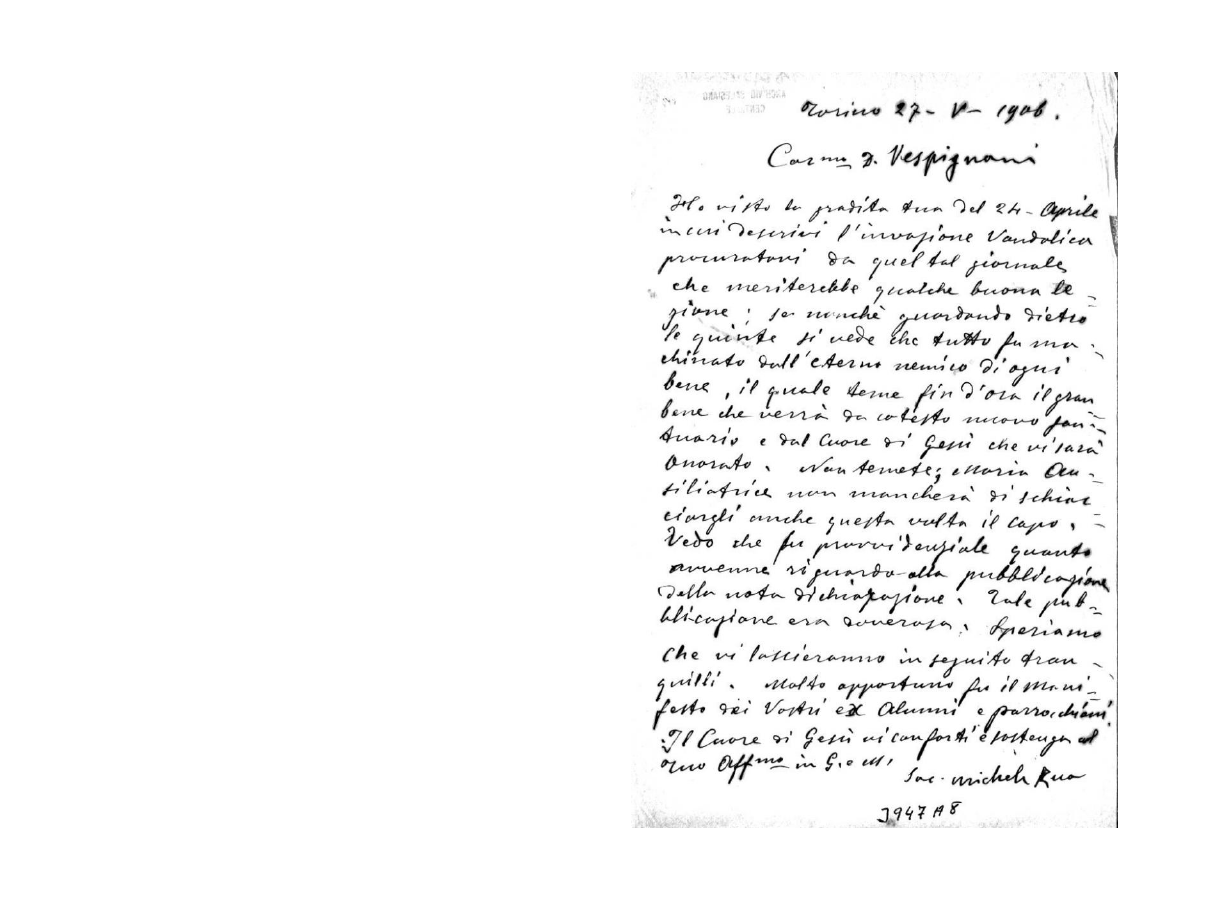 Torino 27 - V - 1906.
Car.mo D. Vespignani
Ho visto la gradita tua del 24 - Aprile
in cui descrivi l'invasione Vandalica
procuratavi da quel tal giornale
che meriterebbe qualche buona le -
zione ; se nonchè guardando dietro
le quinte si vede che tutto fu ma -
chinato dall'eterno nemico di ogni
bene, il quale teme fin d'ora il gran
bene che verrà da cotesto nuovo san =
tuario e dal Cuore di Gesù che vi sarà
Onorato. Non temete; Maria Au -
siliatrice non mancherà di schiac =
ciargli anche questa volta il capo.
Vedo che fu provvidenziale quanto
avvenne riguardo alla pubblicazione
della nota dichiarazione. Tale pub =
blicazione era doverosa. Speriamo
che vi lascieranno in seguito tran -
quilli. Molto opportuno fu il Mani =
festo dei Vostri ex Alunni e parrocchiani.
Il Cuore di Gesù vi conforti e sostenga col
tuo Aff.mo in G. e M.
Sac. Michele Rua
J947A8